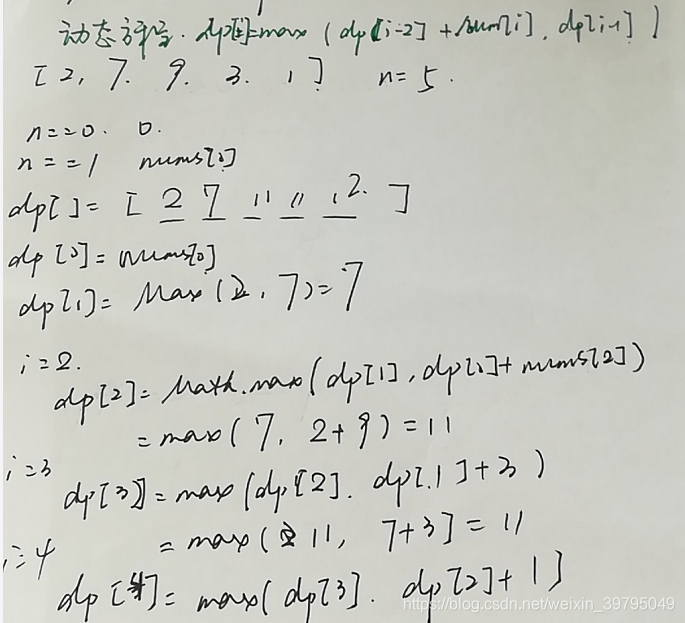 动态方程. dp[i]=max (dp[i-2]+num[i], dp[i-1])
[2, 7. 9. 3. 1] n=5.
n==0. 0.
n==1 nums[0]
dp[]=[ 2 7 11 11 12. ]
dp[0]=nums[0]
dp[1]= Max(2, 7)=7
i=2.
dp[2]= Math.max(dp[1], dp[0]+nums[2])
=max(7, 2+9)=11
i=3
dp[3]=max(dp[2]. dp[1]+3)
=max(11, 7+3]=11
i=4
dp[4]= max(dp[3]. dp[2]+1]
https://blog.csdn.net/weixin_39795049